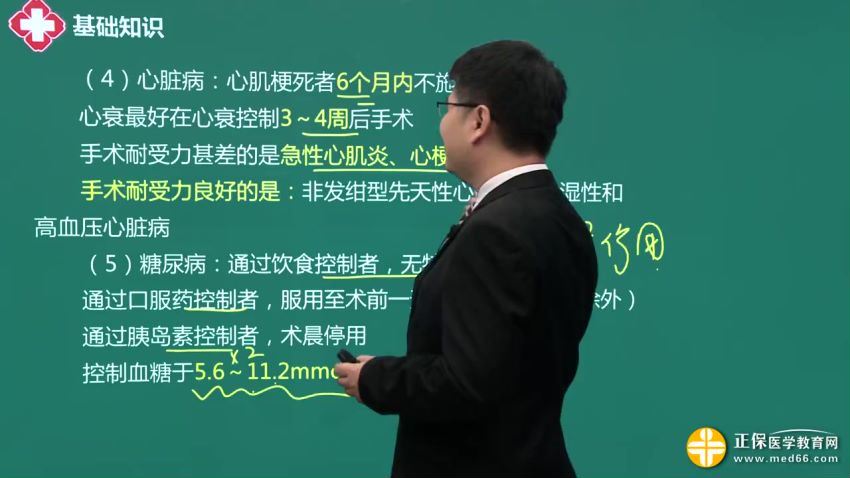 基础知识
（4）心脏病：心肌梗死者6个月内不施
心衰最好在心衰控制3～4周后手术
手术耐受力甚差的是急性心肌炎、心梗
手术耐受力良好的是：非发绀型先天性心 湿性和
高血压心脏病
（5）糖尿病：通过饮食控制者，无特
停用
通过口服药控制者，服用至术前一 除外）
通过胰岛素控制者，术晨停用
×2
控制血糖于5.6～11.2mmo
正保医学教育网
www.med66.com